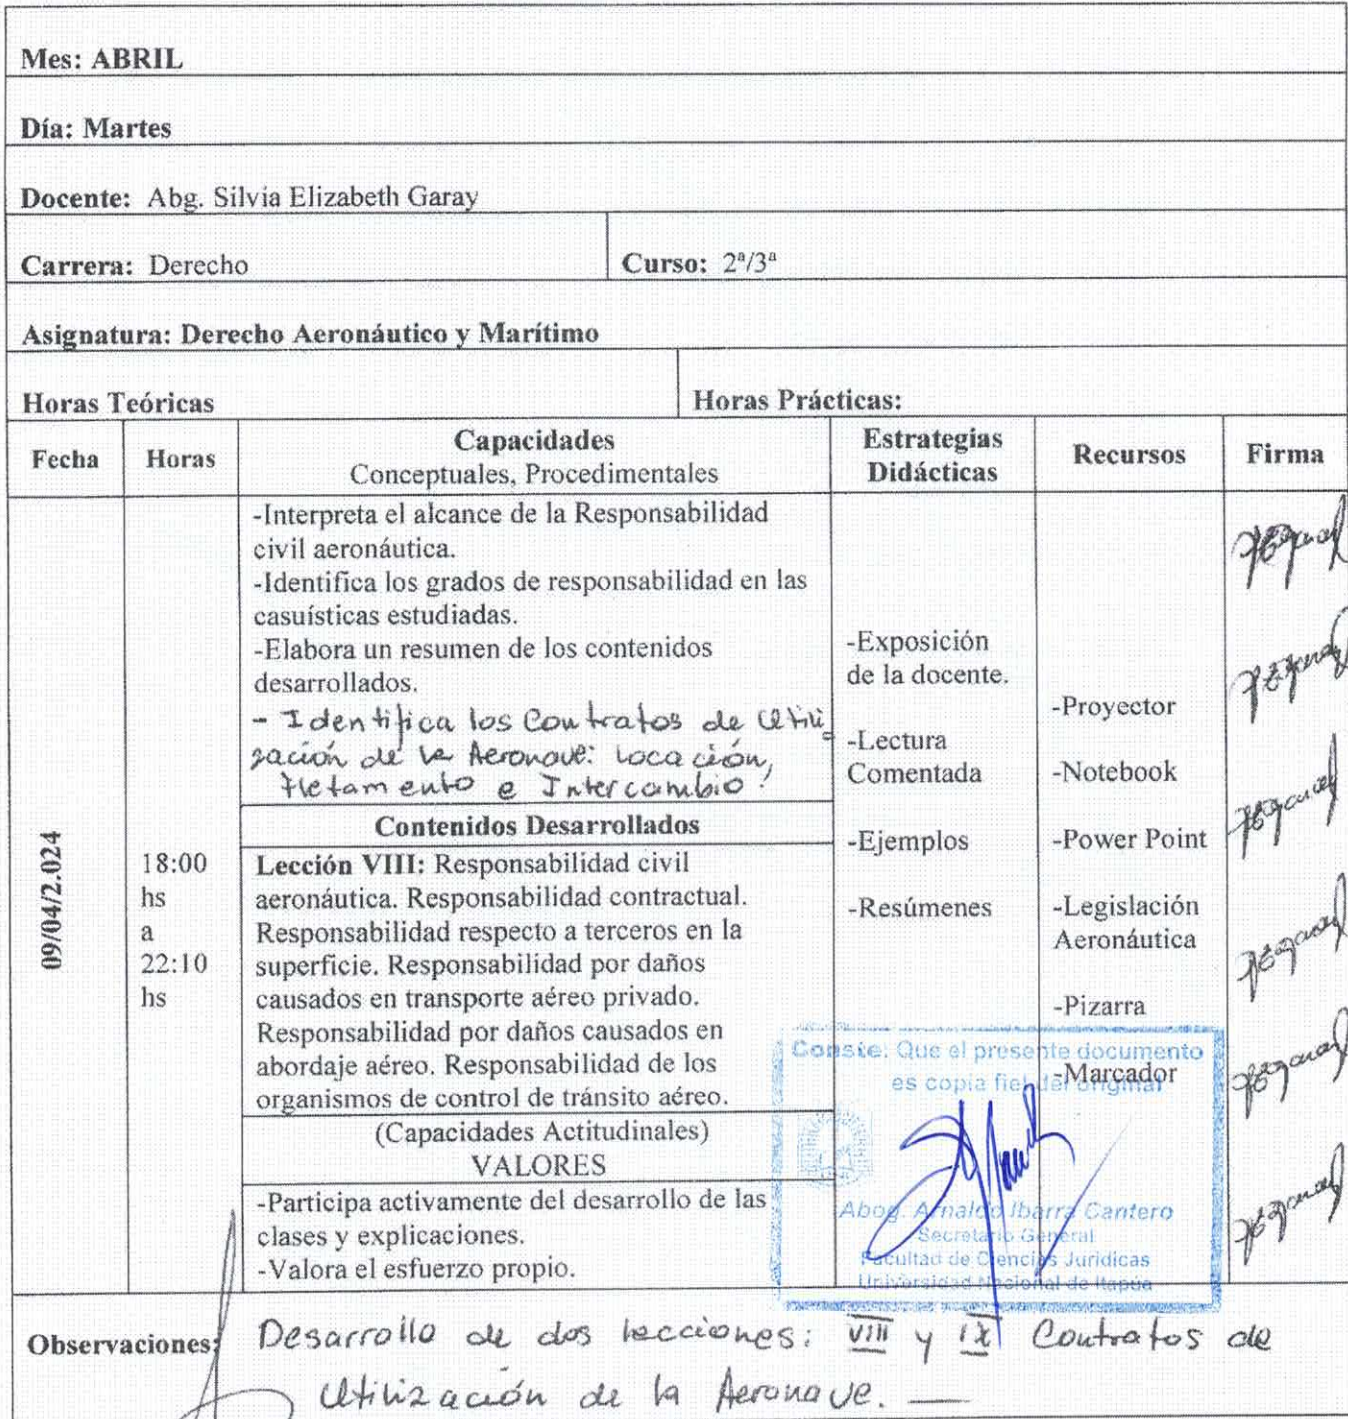 Mes: ABRIL
Día: Martes
Docente: Abg. Silvia Elizabeth Garay
Carrera: Derecho
Curso: 2ª/3ª
Asignatura: Derecho Aeronáutico y Marítimo
Horas Teóricas
Horas Prácticas:
Fecha
Horas
Capacidades
Conceptuales, Procedimentales
Estrategias
Didácticas
Recursos
Firma
09/04/2.024
18:00
hs
a
22:10
hs
-Interpreta el alcance de la Responsabilidad
civil aeronáutica.
-Identifica los grados de responsabilidad en las
casuísticas estudiadas.
-Elabora un resumen de los contenidos
desarrollados.
- Identifica los Contratos de Utili
zación de la Aeronave: Locación,
Fletamento e Intercambio.
Contenidos Desarrollados
Lección VIII: Responsabilidad civil
aeronáutica. Responsabilidad contractual.
Responsabilidad respecto a terceros en la
superficie. Responsabilidad por daños
causados en transporte aéreo privado.
Responsabilidad por daños causados en
abordaje aéreo. Responsabilidad de los
organismos de control de tránsito aéreo.
(Capacidades Actitudinales)
VALORES
-Participa activamente del desarrollo de las
clases y explicaciones.
-Valora el esfuerzo propio.
-Exposición
de la docente.
-Lectura
Comentada
-Ejemplos
-Resúmenes
-Proyector
-Notebook
-Power Point
-Legislación
Aeronáutica
-Pizarra
-Marcador
Conste: Que el presente documento
es copia fiel del original
Abog. Arnaldo Ibarra Cantero
Secretario General
Facultad de Ciencias Jurídicas
Universidad Nacional de Itapúa
Observaciones: Desarrollo de dos lecciones: VIII y IX Contratos de
Utilización de la Aeronave. —